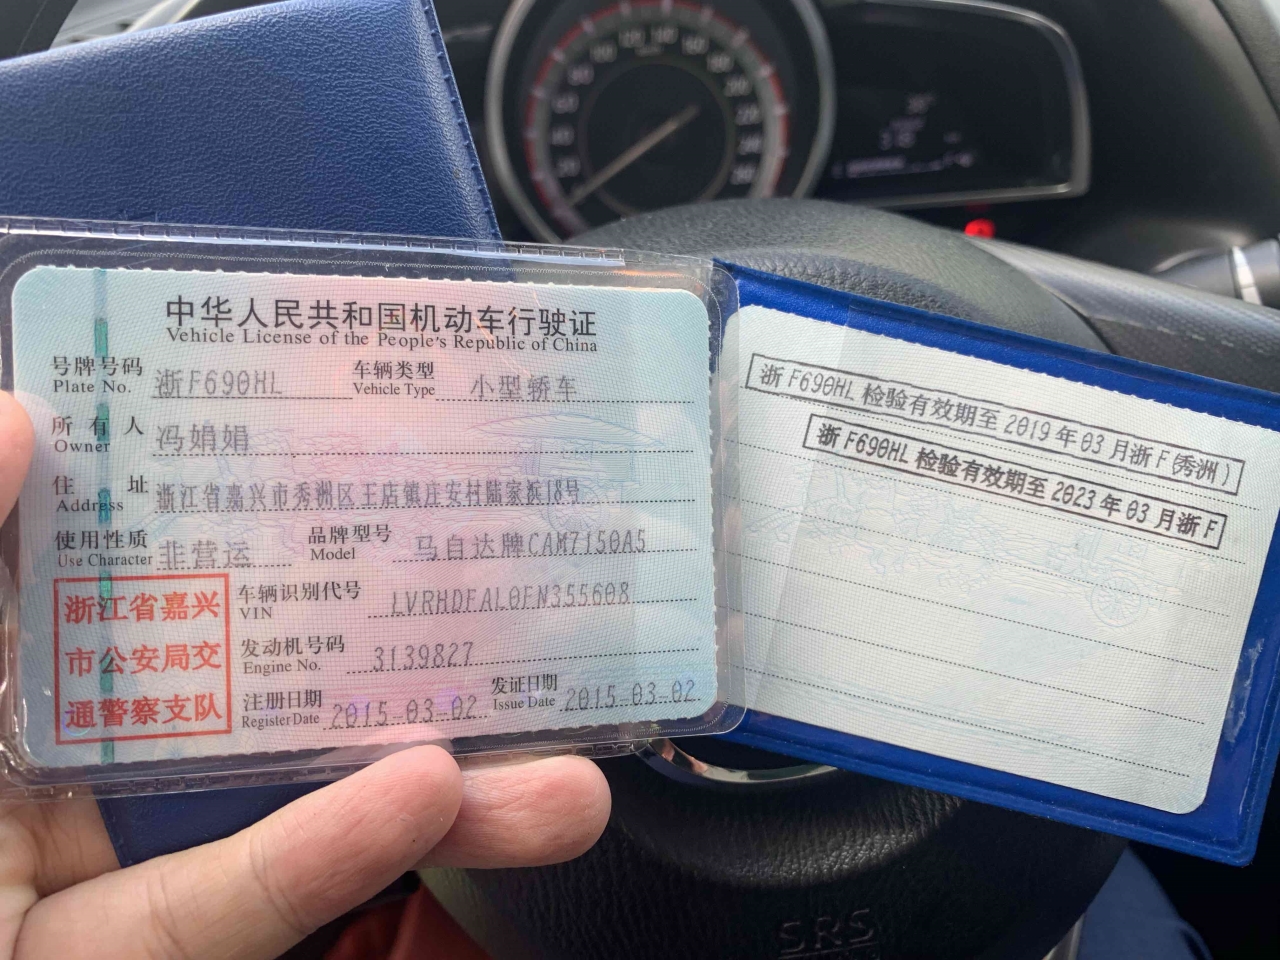 中华人民共和国机动车行驶证
Vehicle License of the People's Republic of China
号牌号码 浙F690HL 车辆类型 小型轿车
Plate No. Vehicle Type
所有人 冯娟娟
Owner
住址 浙江省嘉兴市秀洲区王店镇庄安村陆家浜18号
Address
使用性质 非营运 品牌型号 马自达牌CAM7150A5
Use Character Model
浙江省嘉兴
市公安局交
通警察支队
车辆识别代号 LVRHDFAL0FN355608
VIN
发动机号码 3139827
Engine No.
注册日期 2015-03-02 发证日期 2015-03-02
Register Date Issue Date
浙F690HL检验有效期至2019年03月浙F(秀洲)
浙F690HL检验有效期至2023年03月浙F
20
40
60
80
100
120
140
160
180
200
220
240
260
SRS